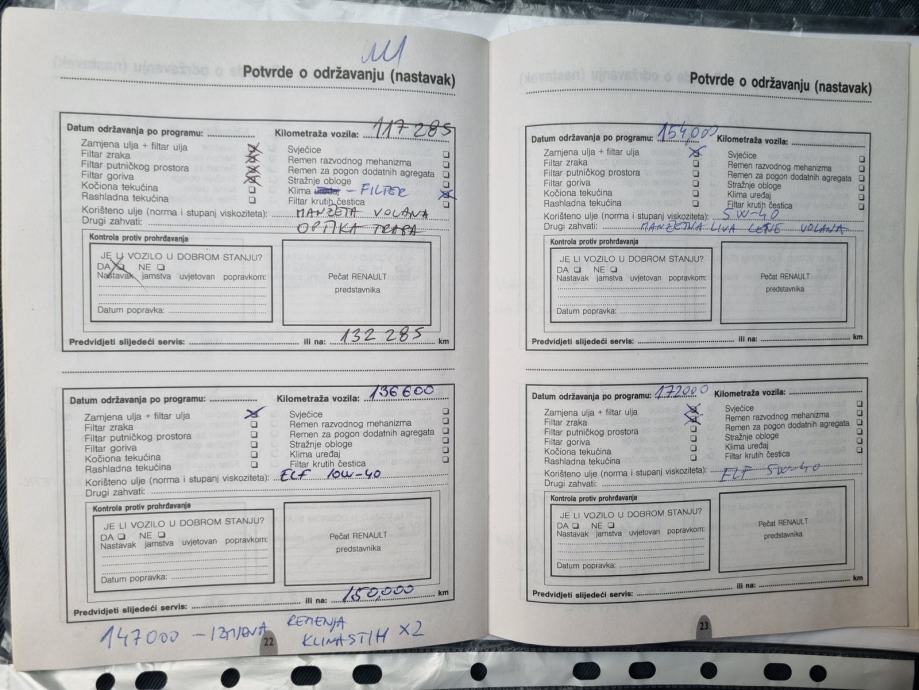 Potvrde o održavanju (nastavak)
Datum održavanja po programu: ............ Kilometraža vozila: ... 117 285
Zamjena ulja + filtar ulja ☒ Svjećice ❏
Filtar zraka ☒ Remen razvodnog mehanizma ❏
Filtar putničkog prostora ☒ Remen za pogon dodatnih agregata ❏
Filtar goriva ☒ Stražnje obloge ❏
Kočiona tekućina ❏ Klima - FILTER ☒
Rashladna tekućina ❏ Filtar krutih čestica ❏
Korišteno ulje (norma i stupanj viskoziteta): MANŽETA VOLANA
Drugi zahvati: OPTIKA TRAPA
Kontrola protiv prohrđavanja
JE LI VOZILO U DOBROM STANJU?
DA ☒ NE ❏
Nastavak jamstva uvjetovan popravkom:
Datum popravka:
Pečat RENAULT
predstavnika
Predvidjeti slijedeći servis: ............ ili na: 132 285 km
Datum održavanja po programu: ............ Kilometraža vozila: 136600
Zamjena ulja + filtar ulja ☒ Svjećice ❏
Filtar zraka ❏ Remen razvodnog mehanizma ❏
Filtar putničkog prostora ❏ Remen za pogon dodatnih agregata ❏
Filtar goriva ❏ Stražnje obloge ❏
Kočiona tekućina ❏ Klima uređaj ❏
Rashladna tekućina ❏ Filtar krutih čestica ❏
Korišteno ulje (norma i stupanj viskoziteta): ELF 10W-40
Drugi zahvati:
Kontrola protiv prohrđavanja
JE LI VOZILO U DOBROM STANJU?
DA ❏ NE ❏
Nastavak jamstva uvjetovan popravkom:
Datum popravka:
Pečat RENAULT
predstavnika
Predvidjeti slijedeći servis: ............ ili na: 150,000 km
147000 - IZMJENA REMENJA
KLINASTIH X2
22
Potvrde o održavanju (nastavak)
Datum održavanja po programu: 154,000 Kilometraža vozila: ............
Zamjena ulja + filtar ulja ☒ Svjećice ❏
Filtar zraka ❏ Remen razvodnog mehanizma ❏
Filtar putničkog prostora ❏ Remen za pogon dodatnih agregata ❏
Filtar goriva ❏ Stražnje obloge ❏
Kočiona tekućina ❏ Klima uređaj ❏
Rashladna tekućina ❏ Filtar krutih čestica ❏
Korišteno ulje (norma i stupanj viskoziteta): 5W-40
Drugi zahvati: LIVA VOLANA
Kontrola protiv prohrđavanja
JE LI VOZILO U DOBROM STANJU?
DA ❏ NE ❏
Nastavak jamstva uvjetovan popravkom:
Datum popravka:
Pečat RENAULT
predstavnika
Predvidjeti slijedeći servis: ............ ili na: ............ km
Datum održavanja po programu: 172000 Kilometraža vozila: ............
Zamjena ulja + filtar ulja ☒ Svjećice ❏
Filtar zraka ☒ Remen razvodnog mehanizma ❏
Filtar putničkog prostora ❏ Remen za pogon dodatnih agregata ❏
Filtar goriva ❏ Stražnje obloge ❏
Kočiona tekućina ❏ Klima uređaj ❏
Rashladna tekućina ❏ Filtar krutih čestica ❏
Korišteno ulje (norma i stupanj viskoziteta): ELF 5W-40
Drugi zahvati:
Kontrola protiv prohrđavanja
JE LI VOZILO U DOBROM STANJU?
DA ❏ NE ❏
Nastavak jamstva uvjetovan popravkom:
Datum popravka:
Pečat RENAULT
predstavnika
Predvidjeti slijedeći servis: ............ ili na: ............ km
23